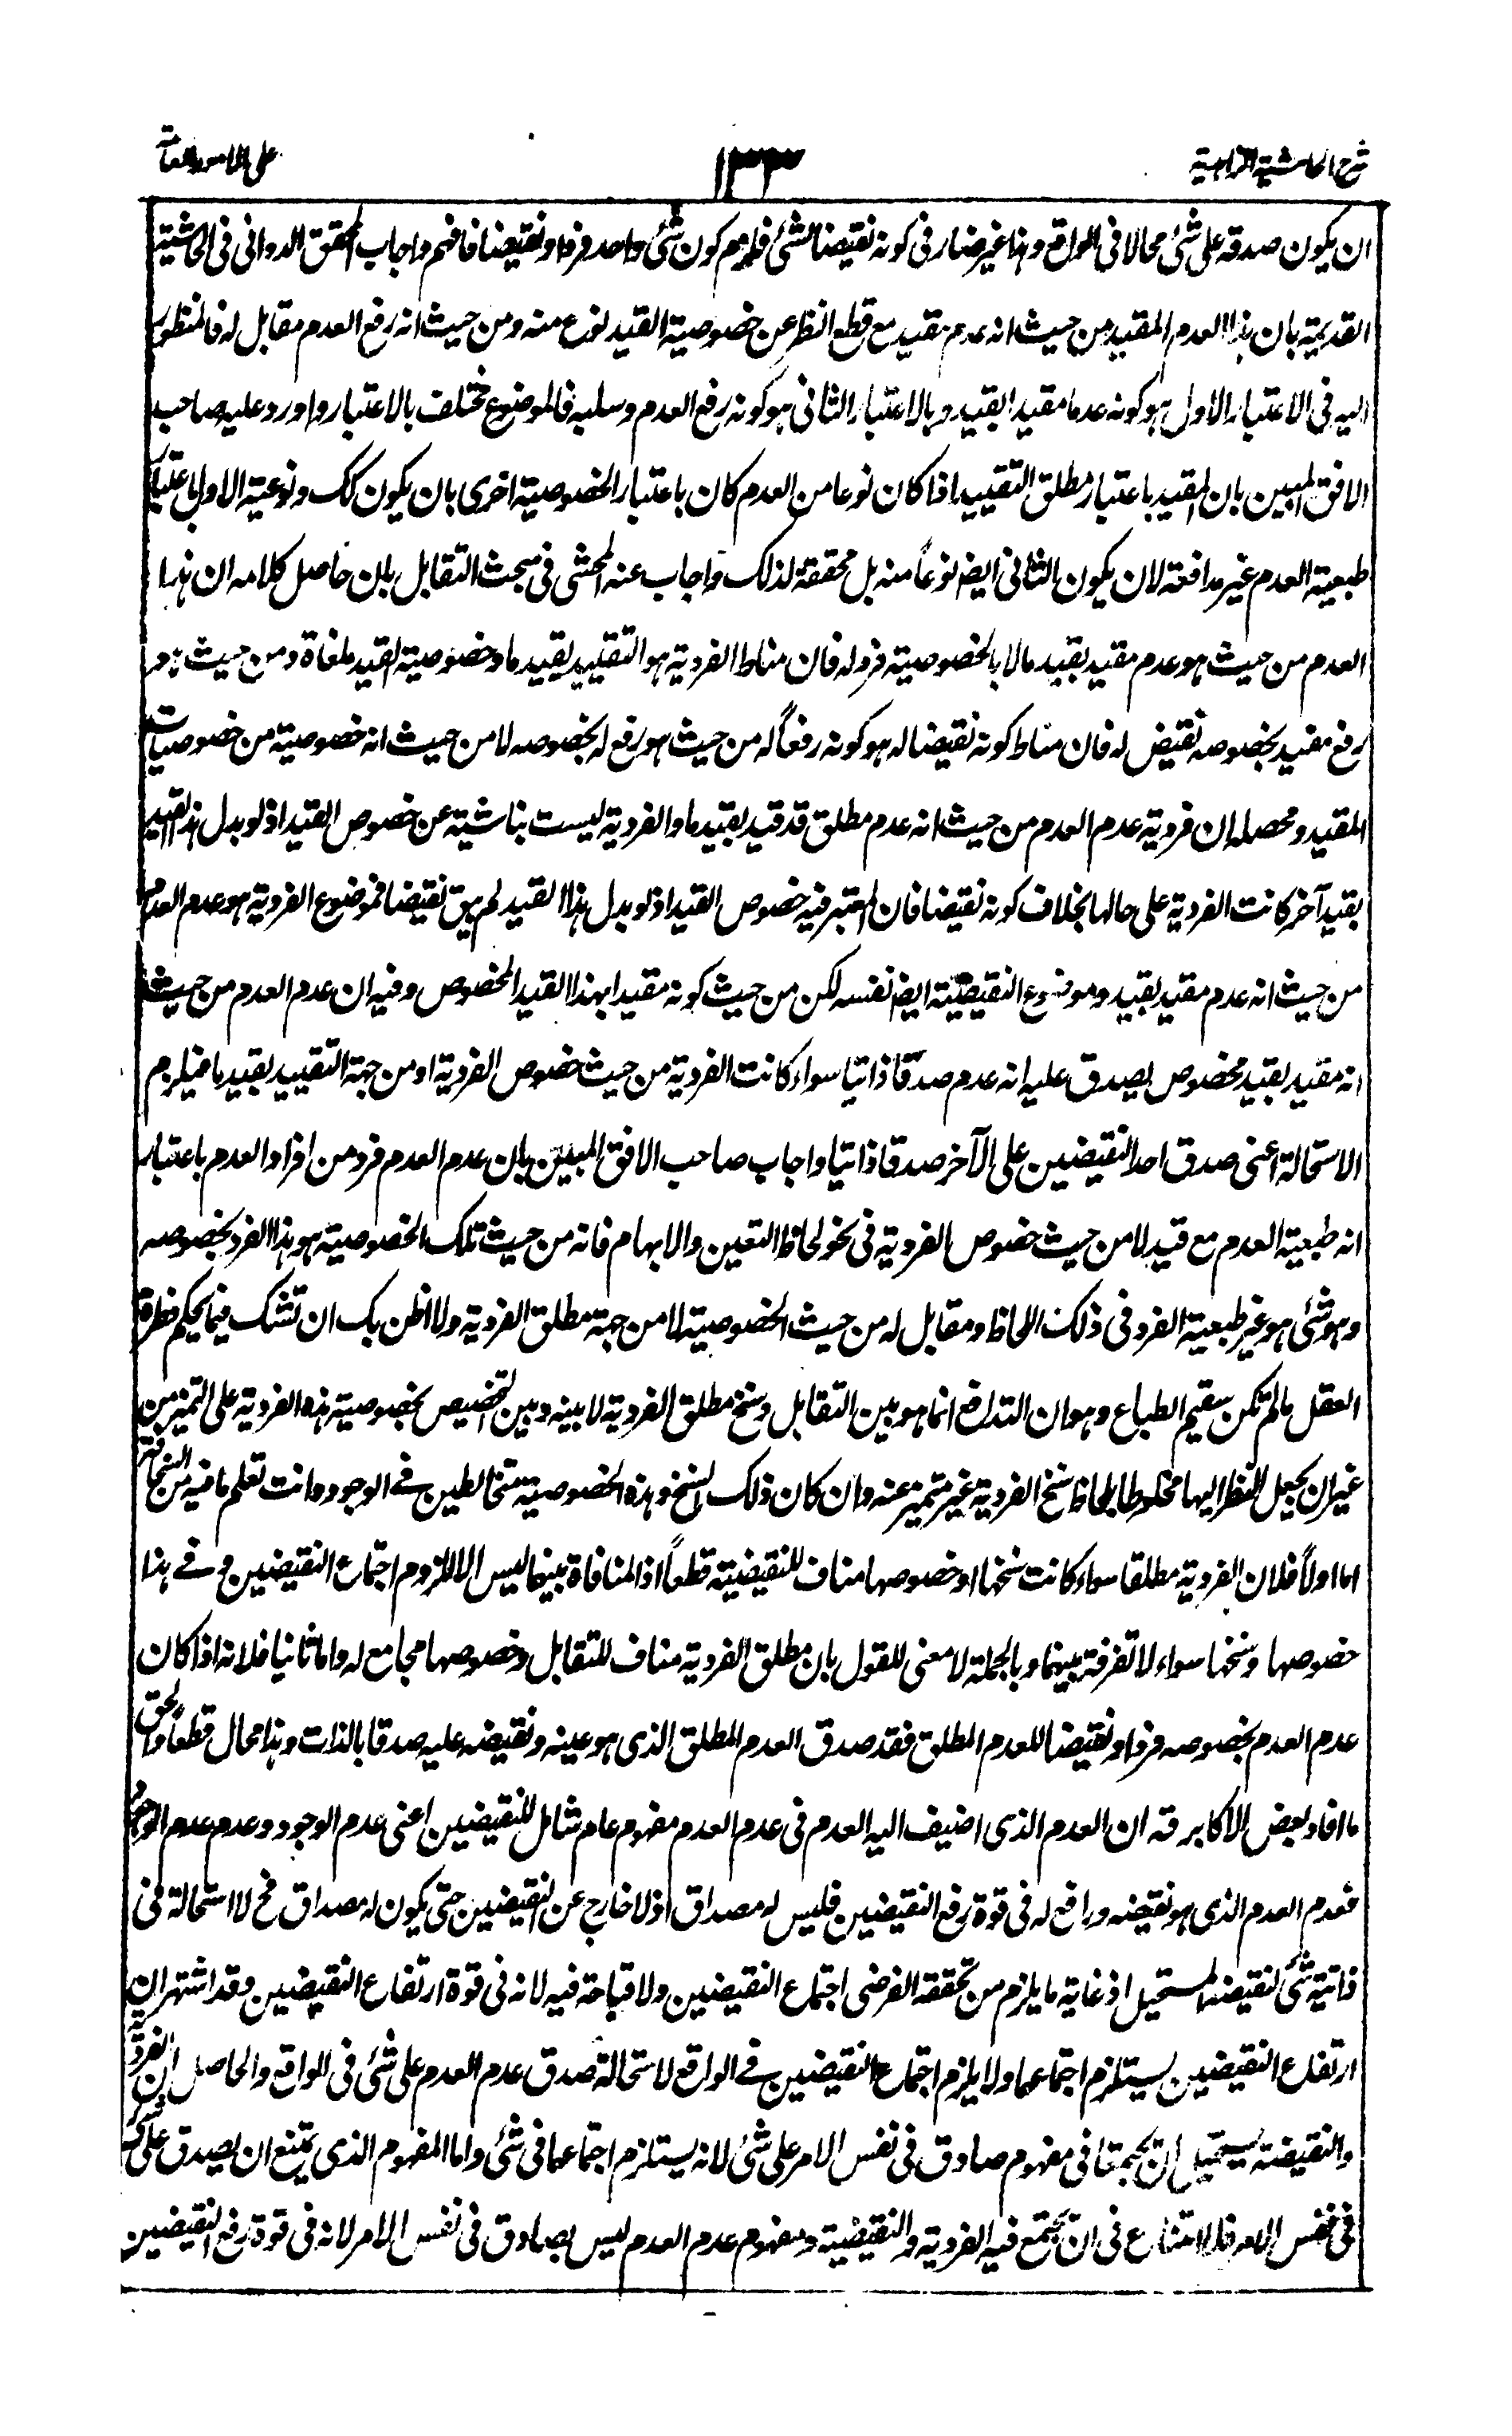 شرح الحاشية الزاهدية
١٣٣
على الامور العامة
ان يكون صدقه على شئ محالا فى الواقع وهذا غير ضار فى كونه نقيضا لشئ فلم كون شئ واحد فردا ونقيضا فافهم واجاب المحقق الدوانى فى الحاشية
القديمة بان هذا العدم المقيد من حيث انه عدم مقيد مع قطع النظر عن خصوصية القيد نوع منه ومن حيث انه رفع العدم مقابل له فالمنظور
اليه فى الاعتبار الاول هو كونه عدما مقيدا بقيد وبالاعتبار الثانى هو كونه رفع العدم وسلبه فالموضوع مختلف بالاعتبار واورد عليه صاحب
الافق المبين بان المقيد باعتبار مطلق التقييد اذا كان نوعا من العدم كان باعتبار الخصوصية احرى بان يكون كك ونوعية الاول باعتبار
طبعية العدم غير مدافعة لان يكون الثانى ايضا نوعاً منه بل محققة لذلك واجاب عنه المحشى فى مبحث التقابل بان حاصل كلامه ان هذا
العدم من حيث هو عدم مقيد بقيد ما لا بالخصوصية فرد له فان مناط الفردية هو التقييد بقيد ما وخصوصية القيد ملغاة ومن حيث هو
رفع مقيد بخصوصه نقيض له فان مناط كونه نقيضا له هو كونه رفعاً له من حيث هو رفع له بخصوصه لا من حيث انه خصوصية من خصوصيات
المقيد ومحصله ان فردية عدم العدم من حيث انه عدم مطلق قد قيد بقيد ما والفردية ليست بناشية عن خصوص القيد اذ لو بدل هذا القيد
بقيد آخر كانت الفردية على حالها بخلاف كونه نقيضا فان المعتبر فيه خصوص القيد اذ لو بدل هذا القيد لم يبق نقيضا فموضوع الفردية هو عدم العدم
من حيث انه عدم مقيد بقيد وموضوع النقيضية ايضا نفسه لكن من حيث كونه مقيدا بهذا القيد المخصوص وفيه ان عدم العدم من حيث
انه مقيد بقيد مخصوص يصدق عليه انه عدم صدقا ذاتيا سواء كانت الفردية من حيث خصوص الفردية او من جهة التقييد بقيد ما فيلزم
الاستحالة اعنى صدق احد النقيضين على الآخر صدقا ذاتيا واجاب صاحب الافق المبين بان عدم العدم فرد من افراد العدم باعتبار
انه طبعية العدم مع قيد لا من حيث خصوص الفردية فى نحو لحاظ التعين والابهام فانه من حيث تلك الخصوصية هو هذا الفرد بخصوصه
وهو شئ هو غير طبعية الفرد فى ذلك اللحاظ ومقابل له من حيث الخصوصية لا من جهة مطلق الفردية ولا اظن بك ان تشك فيما يحكم فطرة
العقل ما لم تكن سقيم الطباع وهو ان التدافع انما هو بين التقابل وسنخ مطلق الفردية لا بينه وبين التخصيص بخصوصية هذه الفردية على التميز من
غير ان يجعل النظر اليها مخلوطا بلحاظ سنخ الفردية غير متميز عنه وان كان ذلك السنخ وهذه الخصوصية متخالطين فى الوجود وانت تعلم ما فيه من السخافة
اما اولاً فلان الفردية مطلقا سواء كانت سنخها او خصوصها مناف للنقيضية قطعاً اذ المنافاة بينهما ليس الا للزوم اجتماع النقيضين و فى هذا
خصوصها وسنخها سواء لا تفرقة بينهما وبالجملة لا معنى للقول بان مطلق الفردية مناف للتقابل وخصوصها مجامع له واما ثانيا فلانه اذا كان
عدم العدم بخصوصه فردا ونقيضا للعدم المطلق فقد صدق العدم المطلق الذى هو عينه ونقيضه عليه صدقا بالذات وهذا محال قطعاً والحق
ما افاد بعض الاكابر قه ان العدم الذى اضيف اليه العدم فى عدم العدم مفهوم عام شامل للنقيضين اعنى عدم الوجود وعدم عدم الوجود
فعدم العدم الذى هو نقيضه ورافع له فى قوة رفع النقيضين فليس له مصداق اذ لا خارج عن النقيضين حتى يكون له مصداق فح لا استحالة فى
ذاتية شئ لنقيضه المستحيل اذ غاية ما يلزم من تحققه الفرضى اجتماع النقيضين ولا قباحة فيه لانه فى قوة ارتفاع النقيضين وقد اشتهر ان
ارتفاع النقيضين يستلزم اجتماعهما ولا يلزم اجتماع النقيضين فى الواقع لاستحالة صدق عدم العدم على شئ فى الواقع والحاصل ان الفردية
والنقيضة يستحيل ان يجتمعا فى مفهوم صادق فى نفس الامر على شئ لانه يستلزم اجتماعهما فى شئ واما المفهوم الذى يمتنع ان يصدق على شئ
فى نفس الامر فلا امتناع فى ان يجتمع فيه الفردية والنقيضية ومفهوم عدم العدم ليس بصادق فى نفس الامر لانه فى قوة رفع النقيضين